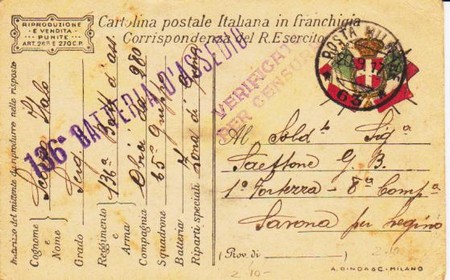 RIPRODUZIONE
E VENDITA
PUNITE
ART. 268 E 270 C.P.
Cartolina postale Italiana in franchigia
Corrispondenza del R. Esercito
POSTA MILIT
63
VERIFICATO
PER CENSURA
136a BATTERIA D'ASSEDIO
Indirizzo del mittente da riprodurre nella risposta
Cognome
e
Nome Italo
Grado
Reggimento 136a Batt. d'ass
e
Arma Obici da 280
Compagnia 65° Gruppo
Squadrone
Batteria
Riparti speciali Zona di
Al Sold. Sig.
Saettone G. B.
1° Fortezza - 8a Compa
Savona per Legino
(Prov. di
2.10-
2.10-
A. GINDA & C. - MILANO